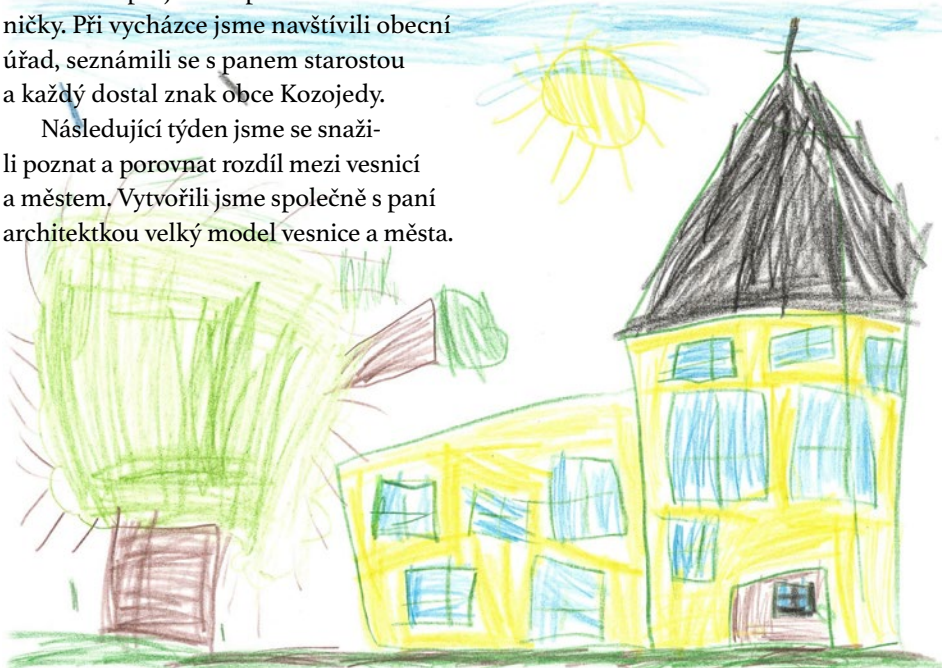 ničky. Při vycházce jsme navštívili obecní
úřad, seznámili se s panem starostou
a každý dostal znak obce Kozojedy.
Následující týden jsme se snaži-
li poznat a porovnat rozdíl mezi vesnicí
a městem. Vytvořili jsme společně s paní
architektkou velký model vesnice a města.